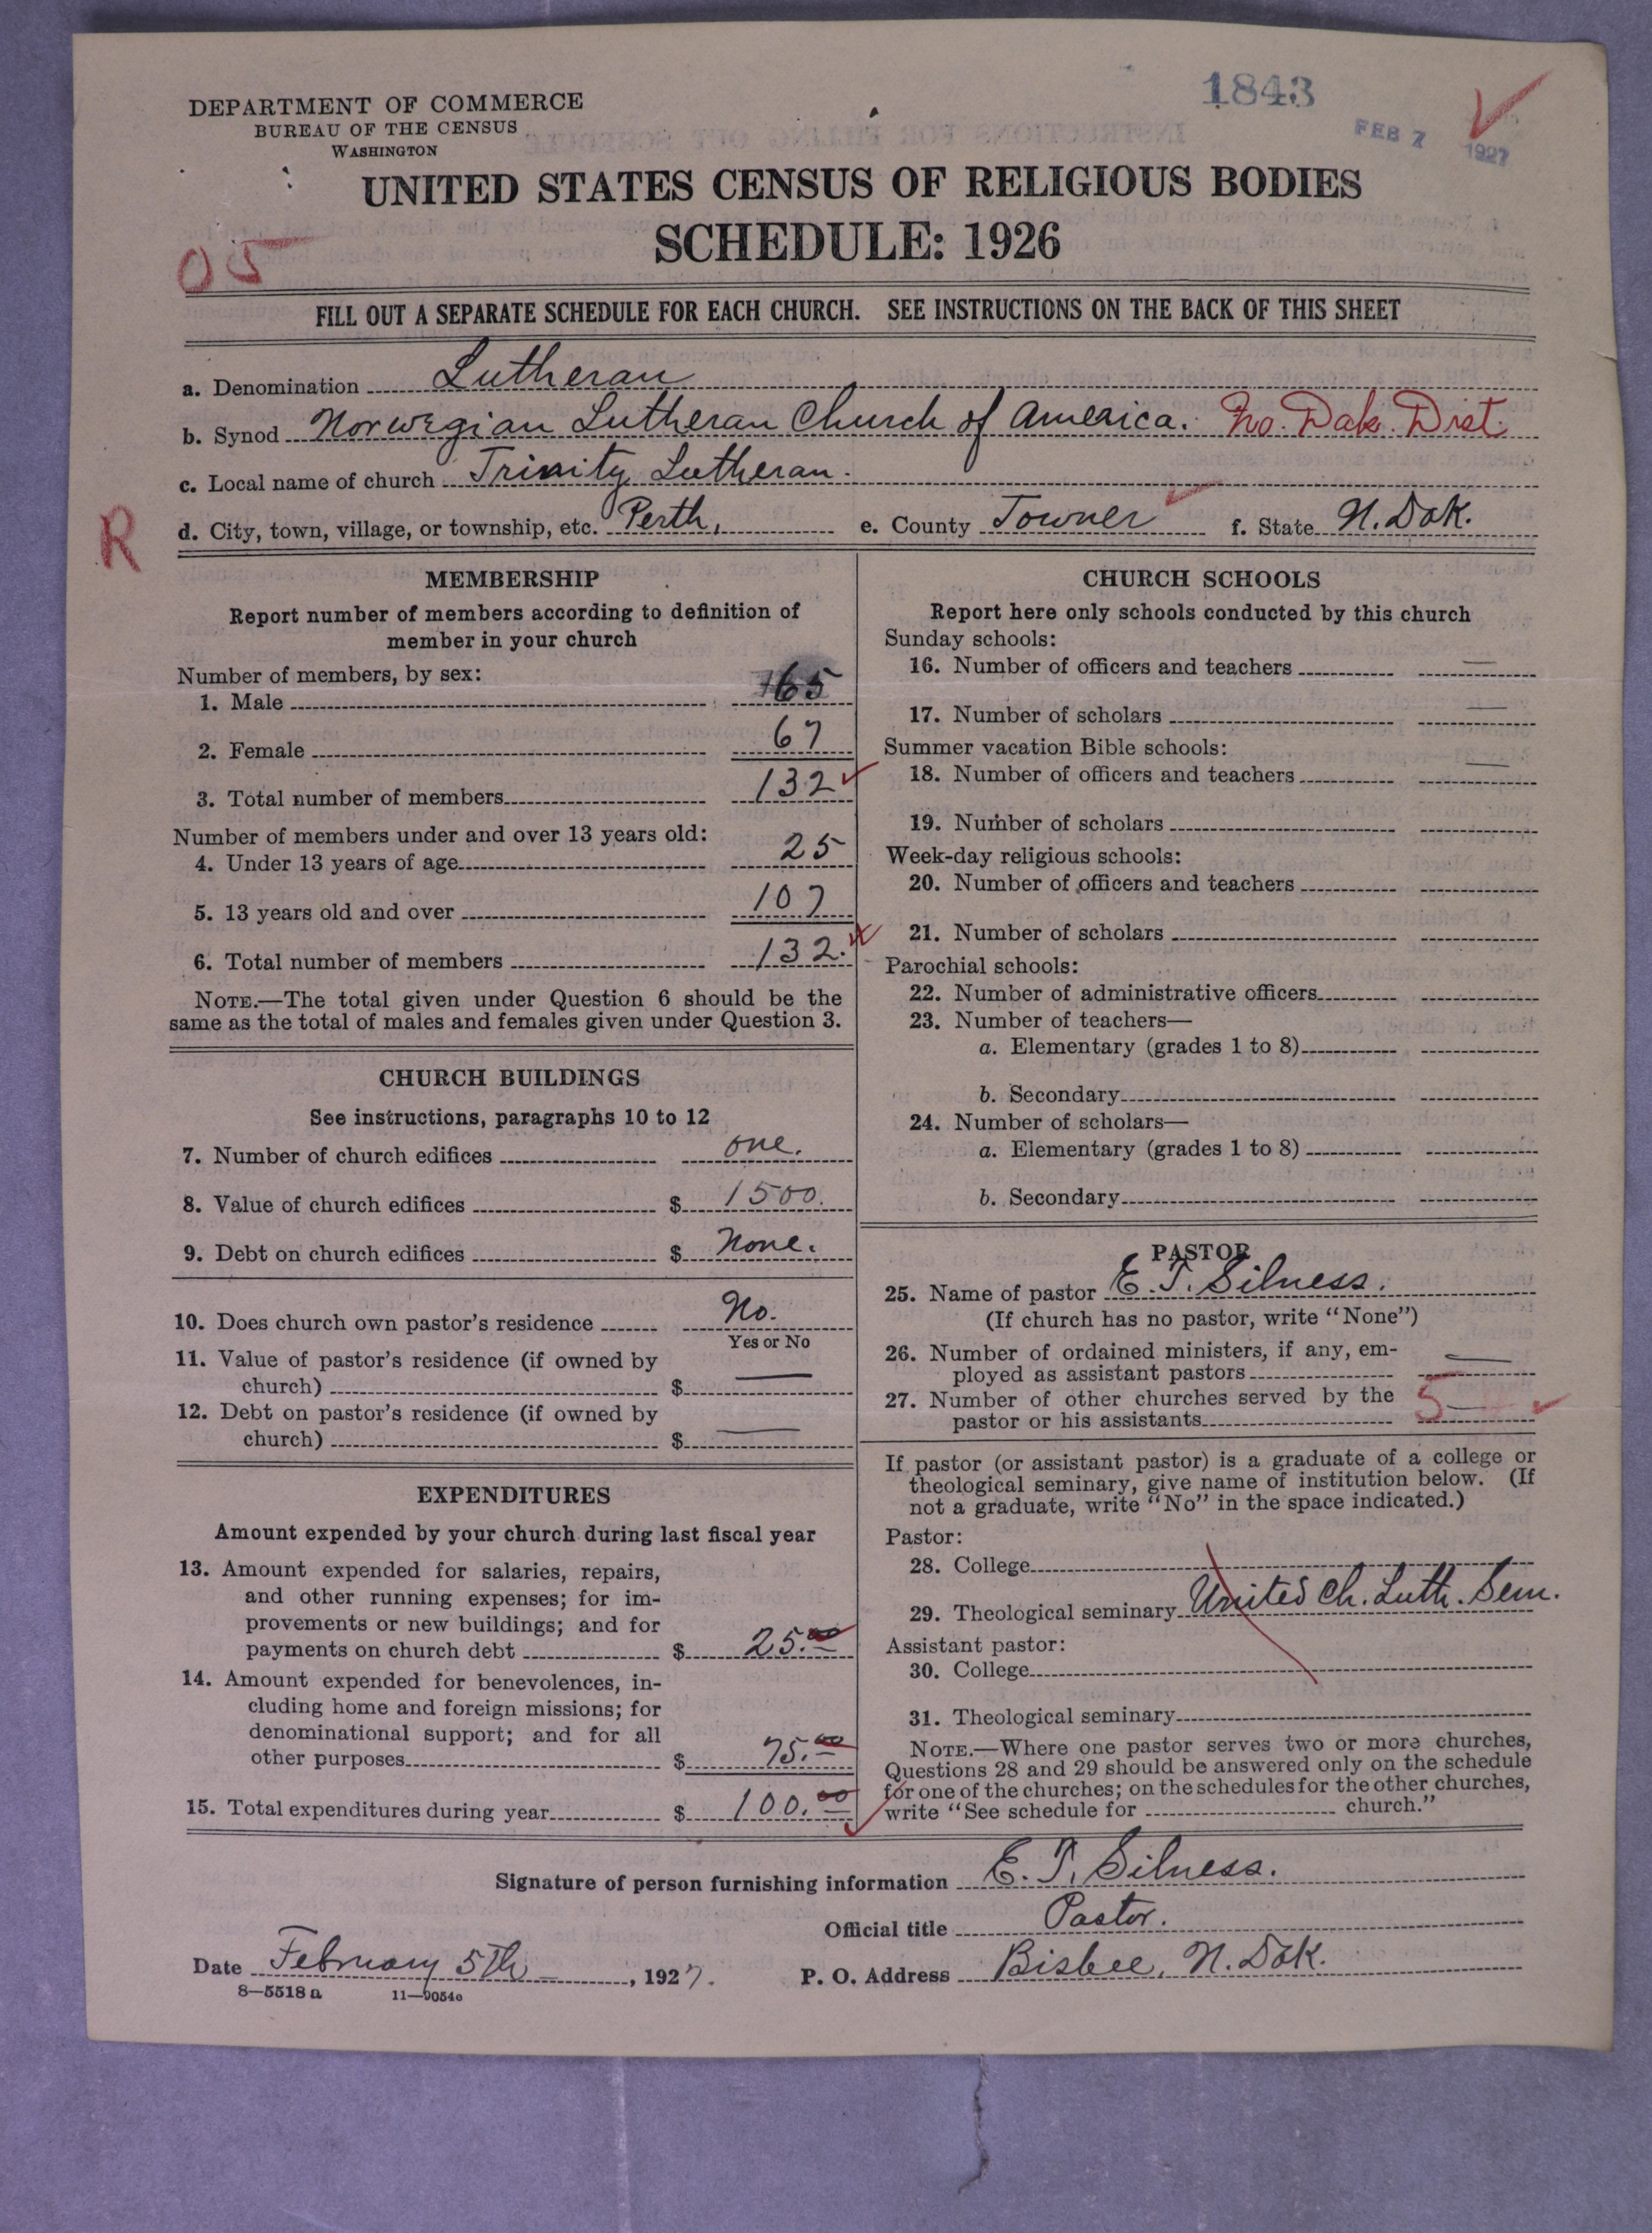 1843
FEB 7 1927
DEPARTMENT OF COMMERCE
BUREAU OF THE CENSUS
WASHINGTON
UNITED STATES CENSUS OF RELIGIOUS BODIES
SCHEDULE: 1926
05
FILL OUT A SEPARATE SCHEDULE FOR EACH CHURCH. SEE INSTRUCTIONS ON THE BACK OF THIS SHEET
a. Denomination Lutheran
b. Synod Norwegian Lutheran Church of America. No. Dak. Dist
c. Local name of church Trinity Lutheran.
R
d. City, town, village, or township, etc. Perth, e. County Towner f. State N. Dak.
MEMBERSHIP
Report number of members according to definition of
member in your church
Number of members, by sex:
1. Male 65
2. Female 67
3. Total number of members 132
Number of members under and over 13 years old:
4. Under 13 years of age 25
5. 13 years old and over 107
6. Total number of members 132.
NOTE.—The total given under Question 6 should be the
same as the total of males and females given under Question 3.
CHURCH BUILDINGS
See instructions, paragraphs 10 to 12
7. Number of church edifices one.
8. Value of church edifices $ 1500.
9. Debt on church edifices $ None.
10. Does church own pastor's residence No.
Yes or No
11. Value of pastor's residence (if owned by
church) $ —
12. Debt on pastor's residence (if owned by
church) $ —
EXPENDITURES
Amount expended by your church during last fiscal year
13. Amount expended for salaries, repairs,
and other running expenses; for im-
provements or new buildings; and for
payments on church debt $ 25.00
14. Amount expended for benevolences, in-
cluding home and foreign missions; for
denominational support; and for all
other purposes $ 75.00
15. Total expenditures during year $ 100.00
CHURCH SCHOOLS
Report here only schools conducted by this church
Sunday schools:
16. Number of officers and teachers —
17. Number of scholars —
Summer vacation Bible schools:
18. Number of officers and teachers —
19. Number of scholars
Week-day religious schools:
20. Number of officers and teachers
21. Number of scholars
Parochial schools:
22. Number of administrative officers
23. Number of teachers—
a. Elementary (grades 1 to 8)
b. Secondary
24. Number of scholars—
a. Elementary (grades 1 to 8)
b. Secondary
PASTOR
25. Name of pastor E. T. Silness.
(If church has no pastor, write "None")
26. Number of ordained ministers, if any, em-
ployed as assistant pastors —
27. Number of other churches served by the
pastor or his assistants 5 —
If pastor (or assistant pastor) is a graduate of a college or
theological seminary, give name of institution below. (If
not a graduate, write "No" in the space indicated.)
Pastor:
28. College
29. Theological seminary United Ch. Luth. Sem.
Assistant pastor:
30. College
31. Theological seminary
NOTE.—Where one pastor serves two or more churches,
Questions 28 and 29 should be answered only on the schedule
for one of the churches; on the schedules for the other churches,
write "See schedule for church."
Signature of person furnishing information E. T. Silness.
Official title Pastor.
Date February 5th, 1927. P. O. Address Bisbee, N. Dak.
8—5518 a 11—9054c